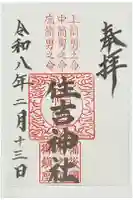 奉拝
上筒男之命
中筒男之命
底筒男之命
住吉神社
令和八年二月十三日